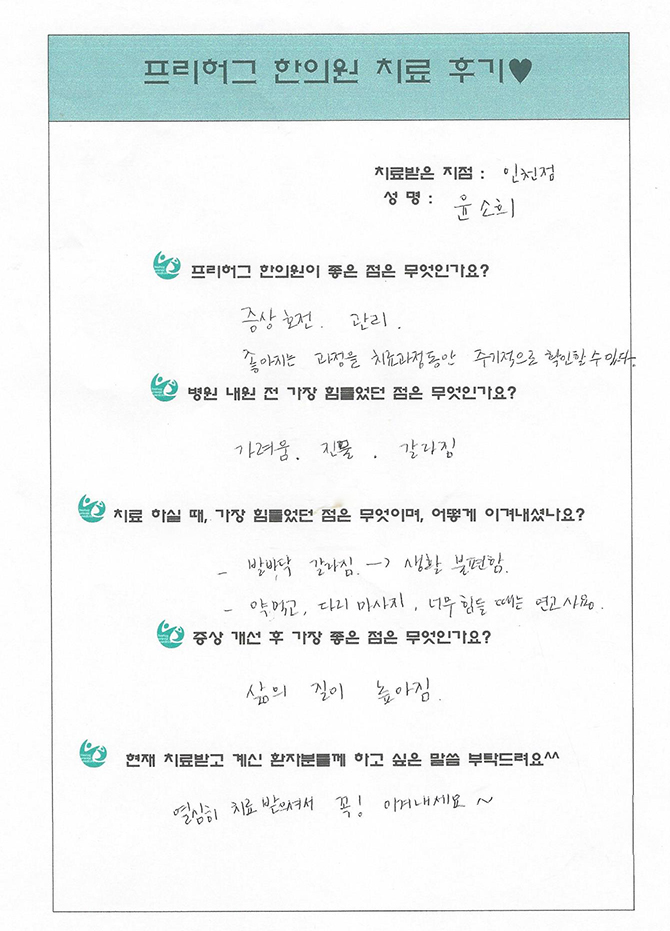 프리허그 한의원 치료 후기♥
치료받은 지점 : 인천점
성 명 : 윤소희
프리허그 한의원이 좋은 점은 무엇인가요?
증상 호전. 관리.
좋아지는 과정을 치료과정동안 주기적으로 확인할 수 있다.
병원 내원 전 가장 힘들었던 점은 무엇인가요?
가려움. 진물. 갈라짐
치료 하실 때, 가장 힘들었던 점은 무엇이며, 어떻게 이겨내셨나요?
- 발바닥 갈라짐. -> 생활 불편함.
- 약먹고, 다리 마사지, 너무 힘들 때는 연고사용.
증상 개선 후 가장 좋은 점은 무엇인가요?
삶의 질이 높아짐.
현재 치료받고 계신 환자분들께 하고 싶은 말씀 부탁드려요^^
열심히 치료 받으셔서 꼭! 이겨내세요~